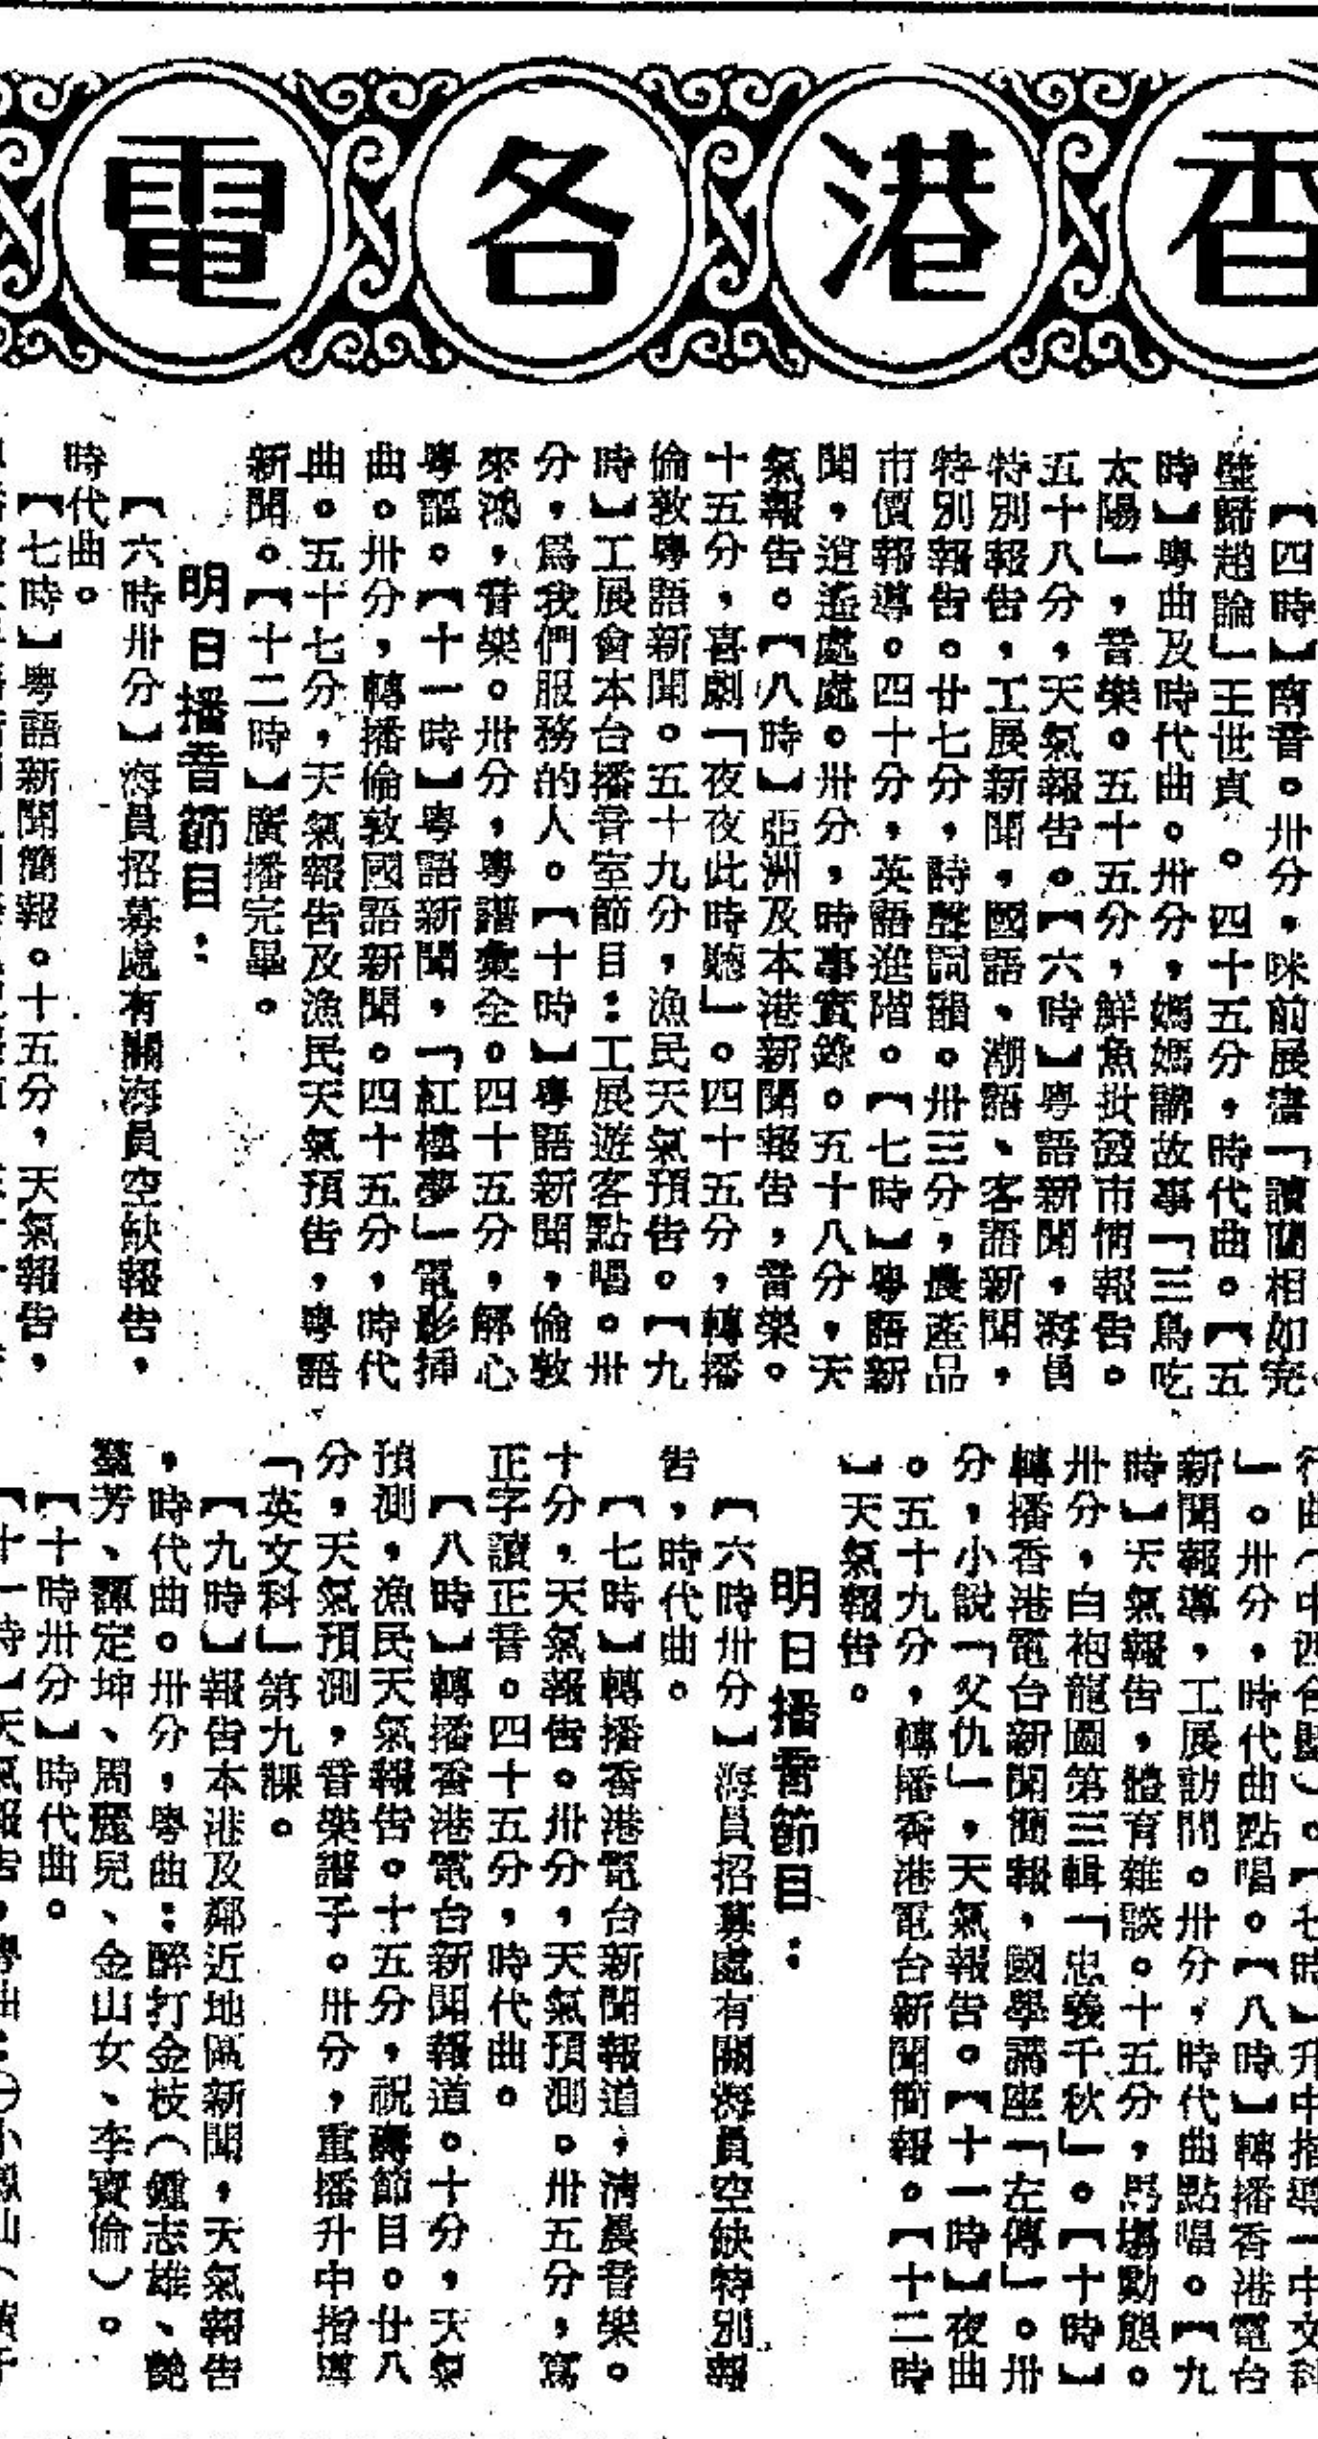 香港各電
【四時】南音。卅分,咪前展書「讀藺相如完
璧歸趙論」王世貞。四十五分,時代曲。【五
時】粵曲及時代曲。卅分,媽媽講故事「三鳥吃
太陽」,音樂。五十五分,鮮魚批發市情報告。
五十八分,天氣報告。【六時】粵語新聞,海員
特別報告,工展新聞,國語、潮語、客語新聞,
特別報告。廿七分,詩聲詞韻。卅三分,農產品
市價報導。四十分,英語進階。【七時】粵語新
聞,逍遙處處。卅分,時事實錄。五十八分,天
氣報告。【八時】亞洲及本港新聞報告,音樂。
十五分,喜劇「夜夜此時聽」。四十五分,轉播
倫敦粵語新聞。五十九分,漁民天氣預告。【九
時】工展會本台播音室節目:工展遊客點唱。卅
分,為我們服務的人。【十時】粵語新聞,倫敦
來鴻,音樂。卅分,粵謳彙全。四十五分,解心
粵謳。【十一時】粵語新聞,「紅樓夢」電影插
曲。卅分,轉播倫敦國語新聞。四十五分,時代
曲。五十七分,天氣報告及漁民天氣預告,粵語
新聞。【十二時】廣播完畢。
明日播音節目:
【六時卅分】海員招募處有關海員空缺報告,
時代曲。
【七時】粵語新聞簡報。十五分,天氣報告,
行曲(中西合璧)。【七時】升中指導「中文科
」。卅分,時代曲點唱。【八時】轉播香港電台
新聞報導,工展訪問。卅分,時代曲點唱。【九
時】天氣報告,體育雜談。十五分,馬場動態。
卅分,白袍龍圖第三輯「忠義千秋」。【十時】
轉播香港電台新聞簡報,國學講座「左傳」。卅
分,小說「父仇」,天氣報告。【十一時】夜曲
。五十九分,轉播香港電台新聞簡報。【十二時
】天氣報告。
明日播音節目:
【六時卅分】海員招募處有關海員空缺特別報
告,時代曲。
【七時】轉播香港電台新聞報道,清晨音樂。
十分,天氣報告。卅分,天氣預測。卅五分,寫
正字讀正音。四十五分,時代曲。
【八時】轉播香港電台新聞報道。十分,天氣
預測,漁民天氣報告。十五分,祝壽節目。廿八
分,天氣預測,音樂譜子。卅分,重播升中指導
「英文科」第九課。
【九時】報告本港及鄰近地區新聞,天氣報告
,時代曲。卅分,粵曲:醉打金枝(鍾志雄、艷
羣芳、譚定坤、周麗兒、金山女、李寶倫)。
【十時卅分】時代曲。
【十一時】天氣報告,粵曲:㊀小鳳仙(